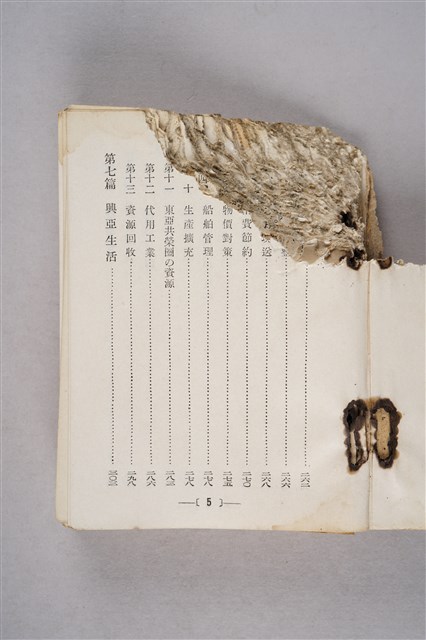 ……二六二
……二六六
送……二六八
費節約……二七〇
物價對策……二七五
船舶管理……二七八
十 生産擴充……二七八
第十一 東亞共榮圈の資源……二八二
第十二 代用工業……二八六
第十三 資源回收……二九八
第七篇 興亞生活……三〇三
—〔 5 〕—